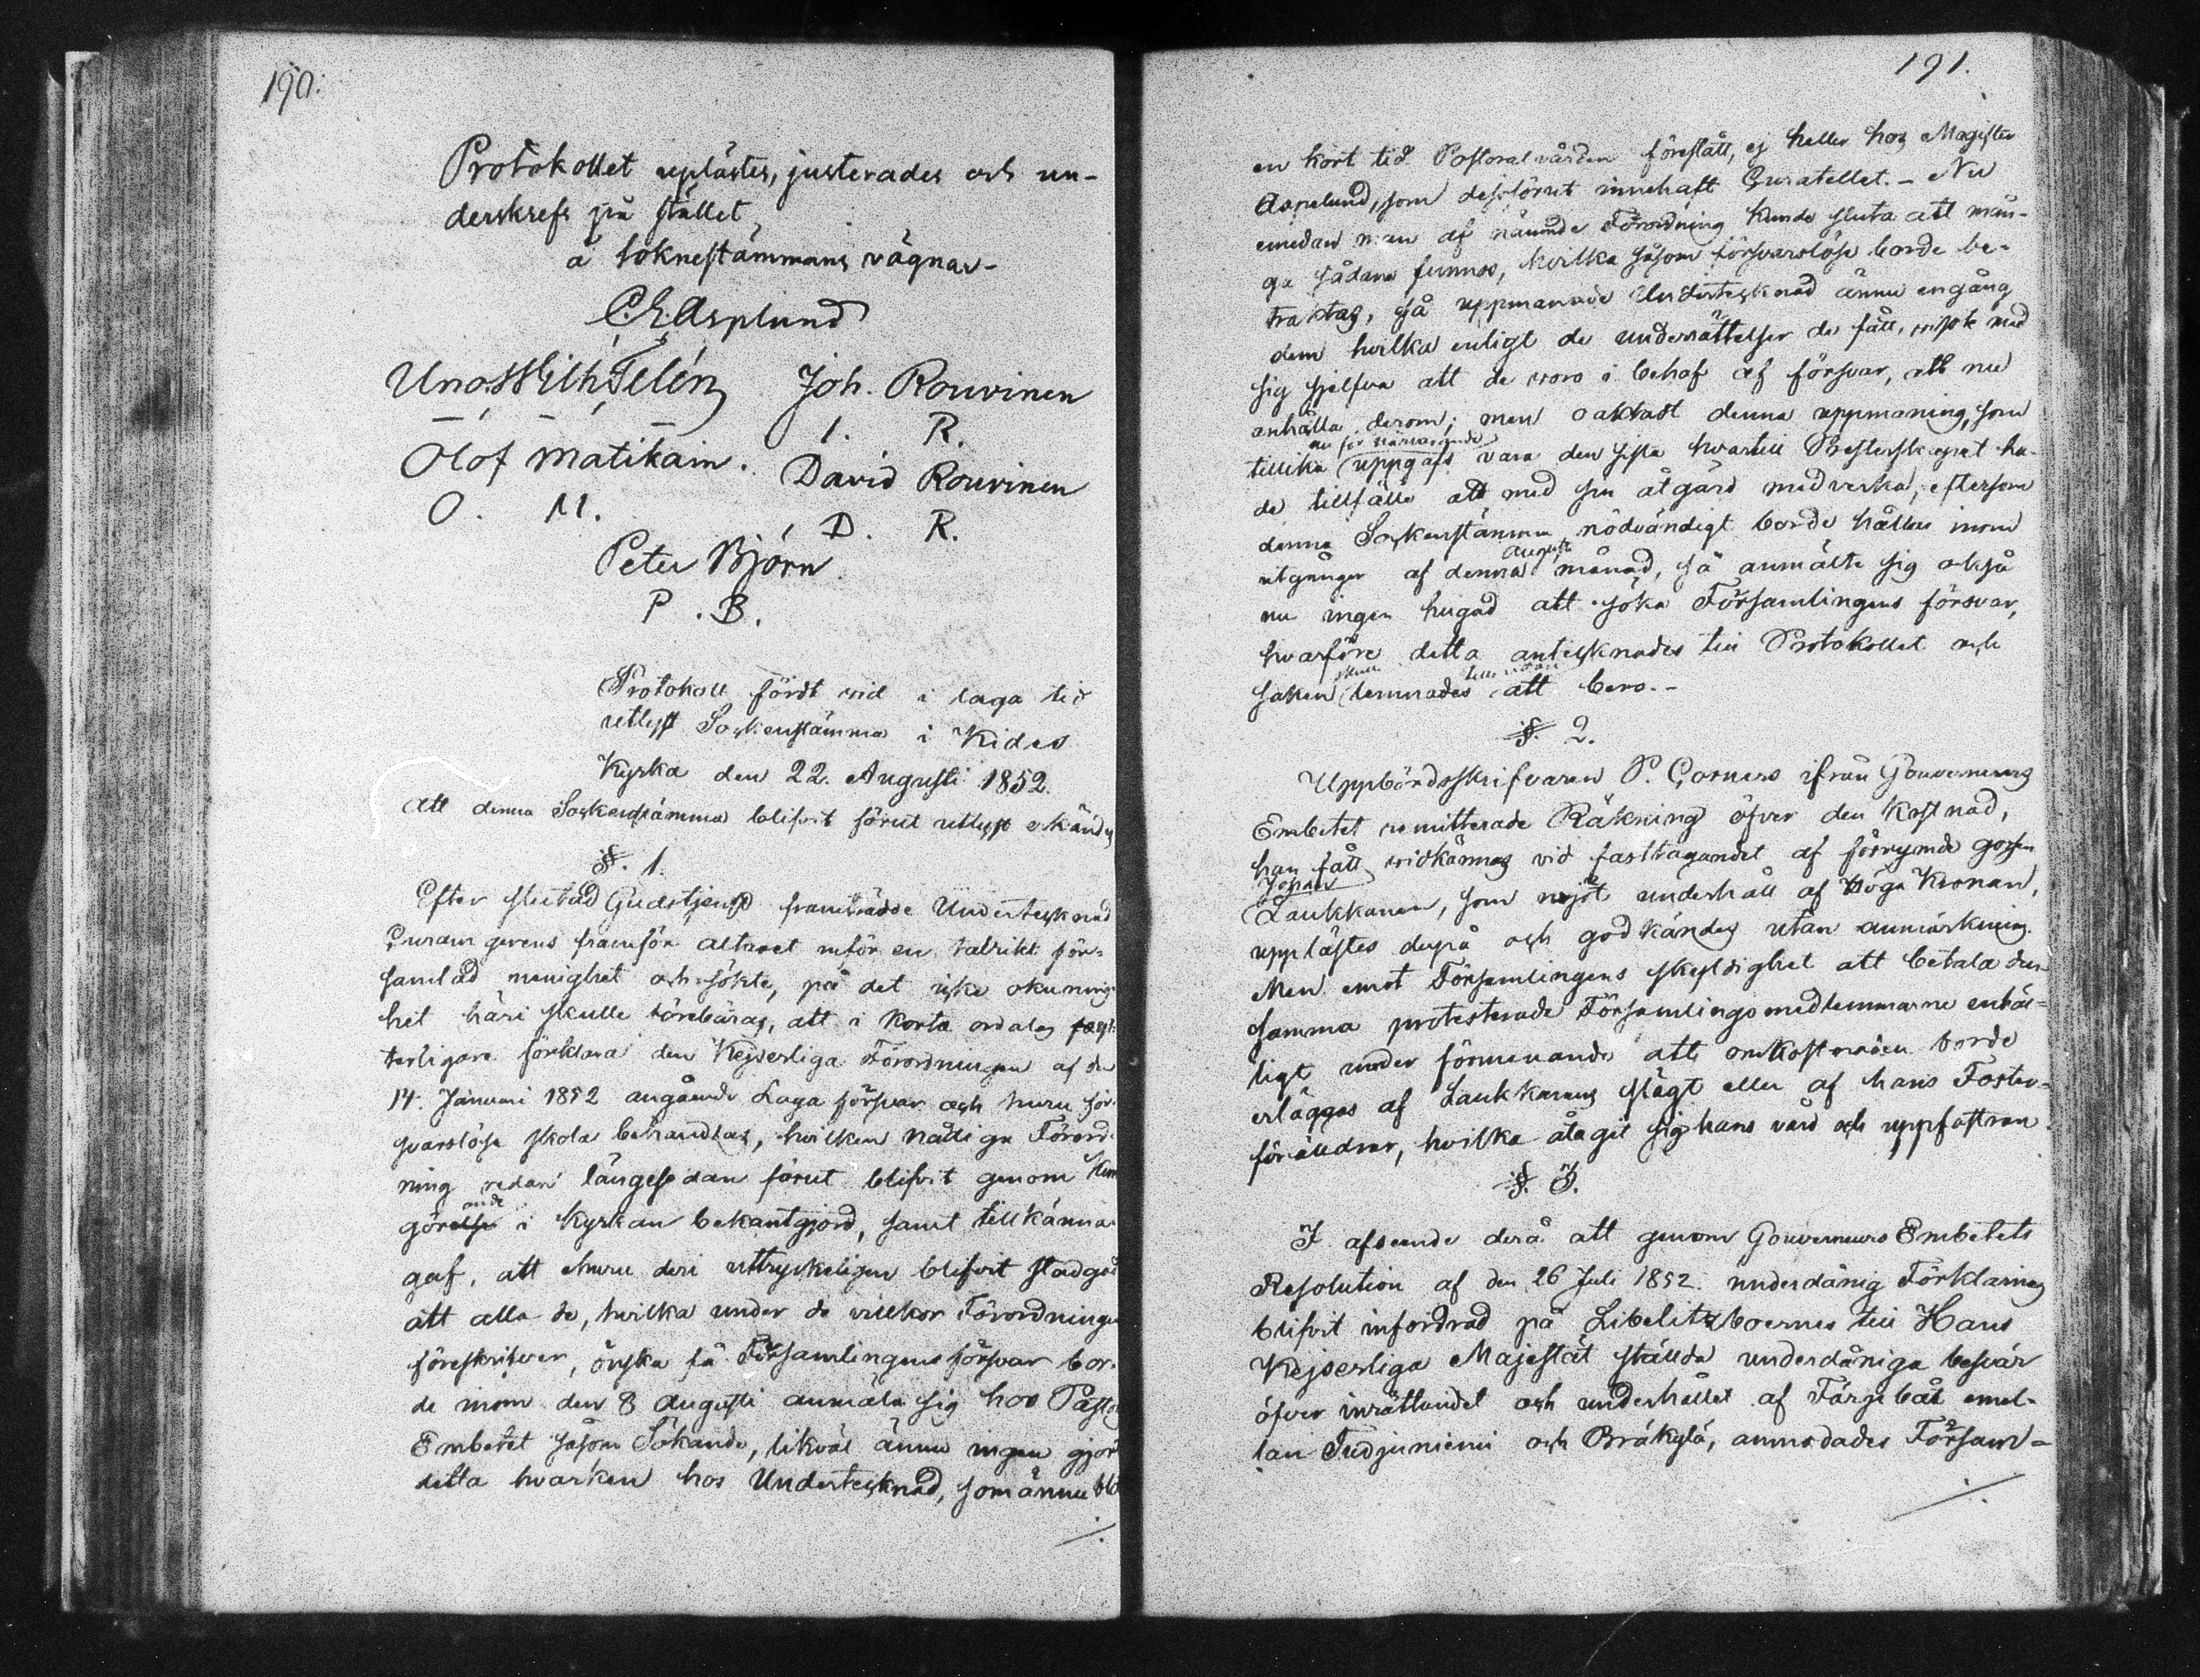 190.
Protokollet uplästes, justerades och un-
derskrefs på stället
å Soknestämmans vägnar-
C. E. Asplund
Uno Wilh. Telén Joh. Rouvinen
I. R.
Olof Matikain. David Rouvinen
O. M. D. R.
Peter Björn
P. B.
Protokoll fördt vid i laga tid
utlyst Sockenstämma i Kides
Kyrka den 22. Augusti 1852.
Att denna Sockenstämma blifvit förut utlyst erkändes
§. 1.
Efter slutad Gudstjenst framträdde Undertecknad
Curam gerens framför altaret inför en talrikt för-
samlad menighet och sökte, på det icke okunnig-
het häri skulle förebäras, att i korta ordalag
terligare förklara den Kejserliga Förordningen af den
14. Januari 1852 angående Laga försvar och huru för-
svarslöse skola behandlas, hvilken nådiga Förord-
ning redan längesedan förut blifvit genom Kun
görande i Kyrkan bekantgjord, samt tillkänna-
gaf, att ehuru deri uttryckeligen blifvit stadgad
att alla de, hvilka under de villkor Förordningen
föreskrifver, önska få Församlingens försvar bor-
de inom den 8 Augusti anmäla sig hos Pastors
Embetet såsom Sökande, likväl ännu ingen gjort
detta hvarken hos Undertecknad, som ännu blott
191.
en kort tid Pastoralvården förestått, ej heller hos Magister
Asplund, som dessförut innehaft Curatellet. - Nu
emedan man af nämnde Förordning kunde sluta att mån-
ga sådana funnos, hvilka såsom försvarslöse borde be-
traktas, så uppmanade Undertecknad ännu engång
dem hvilka enligt de underrättelser de fått, visste med
sig sjelfva att de voro i behof af försvar, att nu
anhålla derom; men oaktadt denna uppmaning, som
nu för närvarande
tillika uppgafs vara den sista hvartill Presterskapet ha-
de tillfälle att med sin åtgärd medverka, eftersom
denna Sockenstämma nödvändigt borde hållas inom
Augusti
utgången af denna månad, så anmälte sig också
nu ingen hugad att söka Församlingens försvar,
hvarföre detta antecknades till Protokollet och
skulle
saken lemnades att bero. -
§. 2.
Uppbördsskrifvaren P. Corners ifrån Gouverneurs
Embetet remitterade Räkning öfver den kostnad,
han fått vidkännas vid fasttagandet af förrymde gossen
Johan
Laukkanen, som njöt underhåll af Höga Kronan,
upplästes derpå och godkändes utan anmärkning.
Men emot Församlingens skyldighet att betala den-
samma protesterade Församlingsmedlemmarne enhäl-
ligt under förmenande att omkostnaden borde
erläggas af Laukkanens slägt eller af hans Foster-
föräldrar, hvilka åtagit sig hans vård och uppfostran
§. 3.
I afseende derå att genom Gouverneurs Embetets
Resolution af den 26 Juli 1852. underdånig Förklaring
blifvit infordrad på Libelitzboernes till Hans
Kejserliga Majestät ställda underdåniga besvär
öfver inrättandet och underhållet af Färgebåt emel-
lan Tudjuniemi och Bräkylä, anmodades Församl-